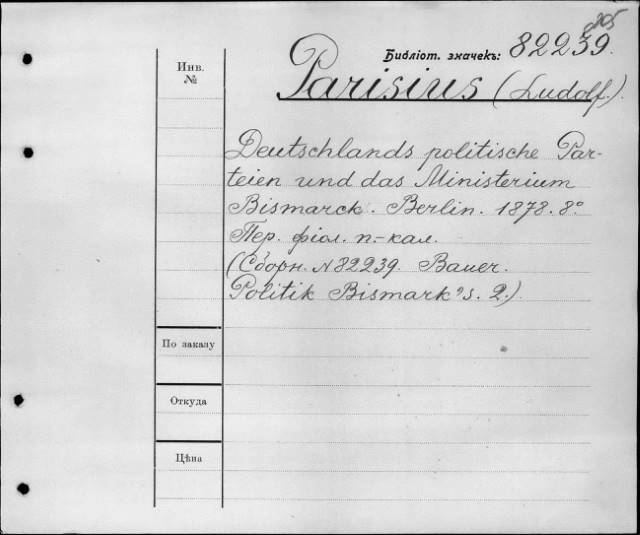 205
Библіот. значекъ: 82239.
Инв.
№
Parisius (Ludolf.).
Deutschlands politische Par-
teien und das Ministerium
Bismarck. Berlin. 1878. 8°
Пер. фіол. п.-кал.
(Сборн. № 82239. Bauer.
Politik Bismark's. 2.)
По заказу
Откуда
Цѣна